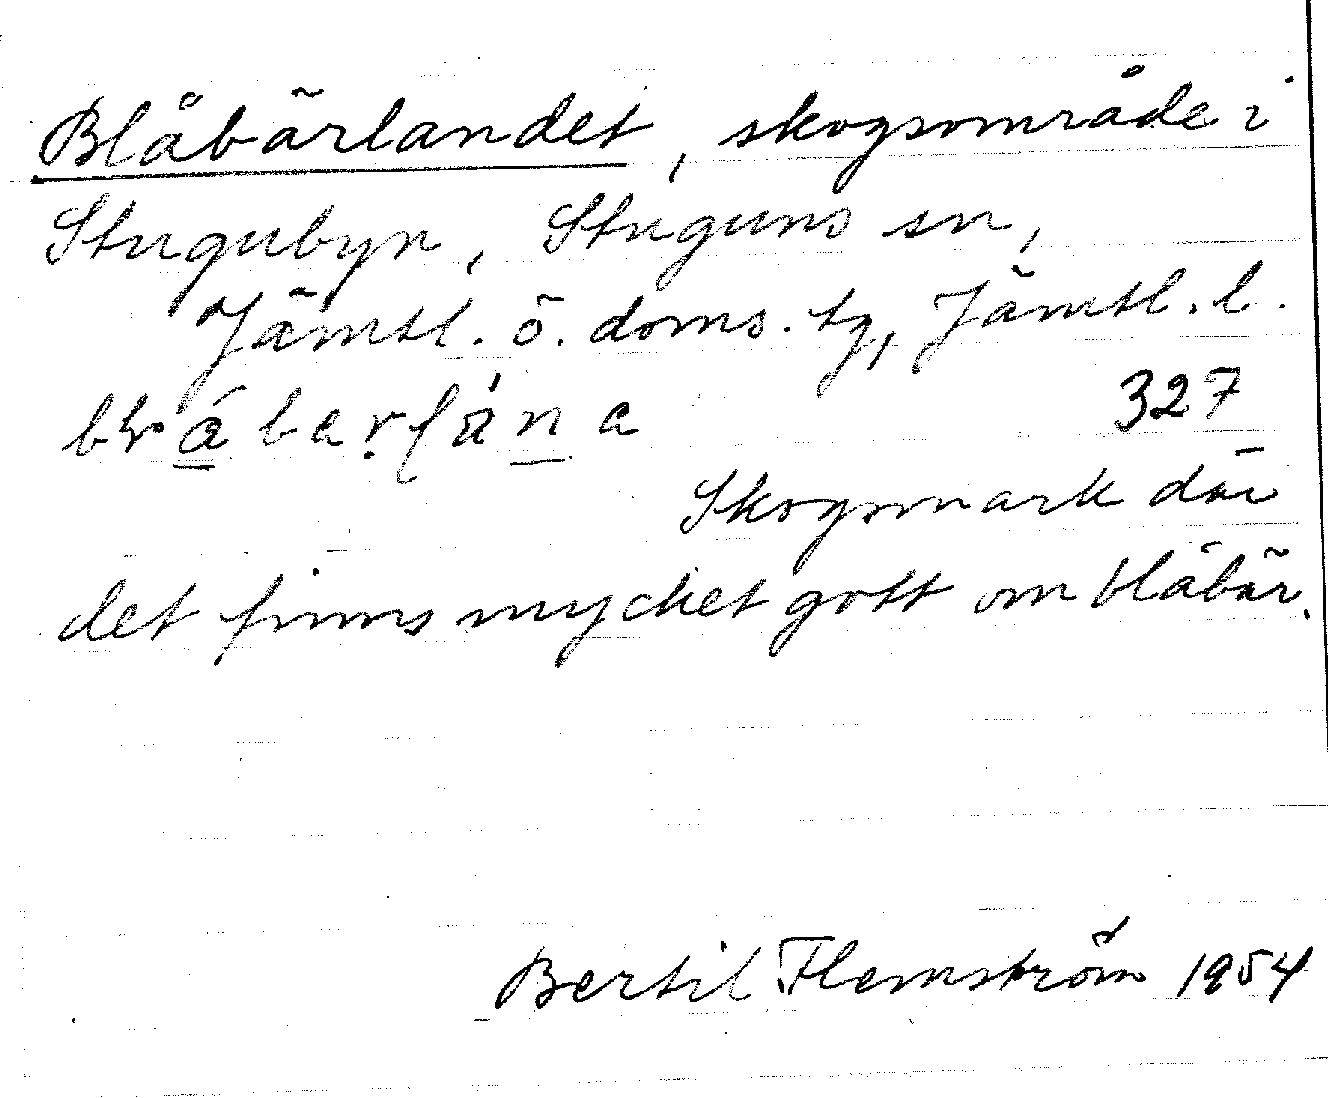 Blåbärlandet, skogsområde i
Stugubyn, Stuguns sn,
Jämtl. ö. doms. tg, Jämtl. l.
327
Skogsmark där
det finns mycket gott om blåbär.
Bertil Flemström 1954